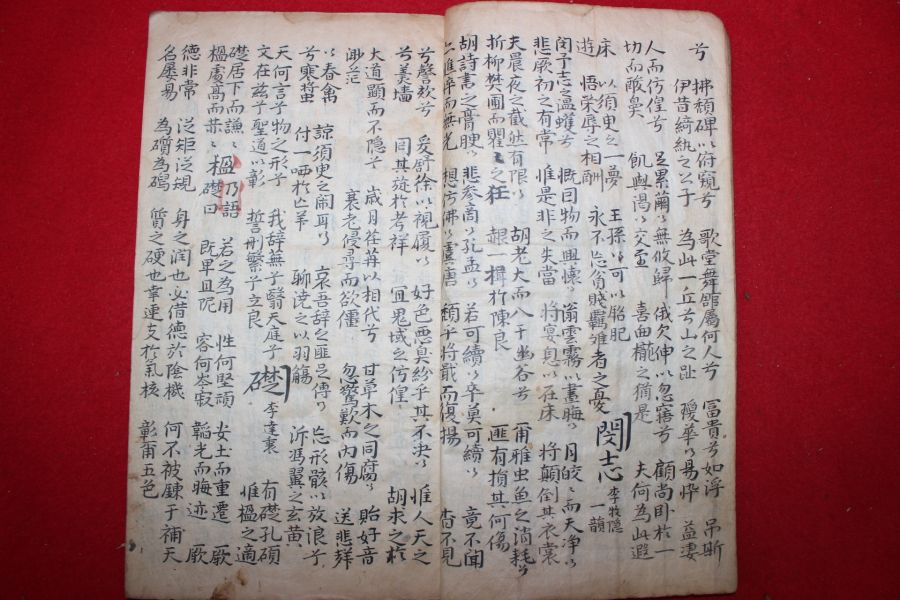 兮 拂頹碑以俯窺兮 歌堂舞館屬何人兮 冨貴兮如浮 吊斷
伊昔綺紈之公子 為此一丘兮山之趾 瘦華以易悴 益凄
人而彷徨兮 足累繭以無攸歸 俄欠伸以忽寤兮 顧尚卧於一
切而酸鼻 飢與渴以交至 喜曲櫳之猶是 夫何為此遐
床 以須臾之一夢 王孫以可以胎肥
遊 悟榮辱之相酬 永不忘貧賤羈雅者之憂 閔志 李牧隱 一韻
閔予志之溫蠖兮 慨曰物而興懷 滃雲霧以晝晦 月皎々而天净
悲厥初之有常 惟是非之失當 將宴息以在床 將顛倒其衣裳
夫晨夜之截然有限 胡老大而入于幽谷兮 雅虫魚之消耗兮
折柳樊圃而瞿々之狂 一楫於陳良 匪有損其何傷
胡詩書之膏腴 悲參商以孔孟 若可續以卒莫可續 竟不聞
卒而無光 想彷彿以虞唐 頹乎將戢而復揚 杳不見
兮謦欬兮 爰舒徐以視履 好色惡臭紛乎其不決 惟人天之
兮羹墻 曰其旋於考祥 冝鬼域之彷徨 胡求之於
大道顯而不隱兮 歲月荏苒以相代兮 甘草木之同腐 貽好音
渺茫 衰老侵尋而欲僵 忽驚歎而內傷 送悲辤
以春禽 諒須臾之鬧耳 哀吾辞之匪足傳 忘形骸以放浪子
兮寒螿 付一哂於亡羊 聊澆之以羽觴 泝馮翼之玄黃
天何言子物之形子 我辞無子翳天庭子 礎 李達衷 有礎孔碩
文在玆子聖道以彰 誓刪繁子立良 惟楹之適
礎居下而謙々 楹乃語 若之為用 性何堅頑 安土而重遷 厥
楹處高而恭々 楹礎曰 既卑且昵 容何岑寂 韜光而晦迹 厥
德非常 泛矩泛規 身之潤也必借德於陰機 何不被鍊于補天
名屡易 為磌為磶 質之硬也幸連支於氣核 彰爾五色